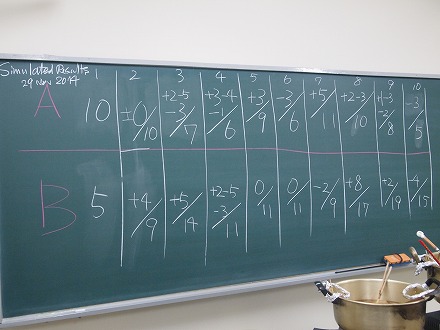 Simulated Results
29 Nov 2014
1 2 3 4 5 6 7 8 9 10
A 10 ±0/10 +2-5 -3/7 +3-4 -1/6 +3/9 -3/6 +5/11 +2-3 /10 +1-3 -2/8 -3/5
B 5 +4/9 +5/14 +2-5 -3/11 0/11 0/11 -2/9 +8/17 +2/19 -4/15